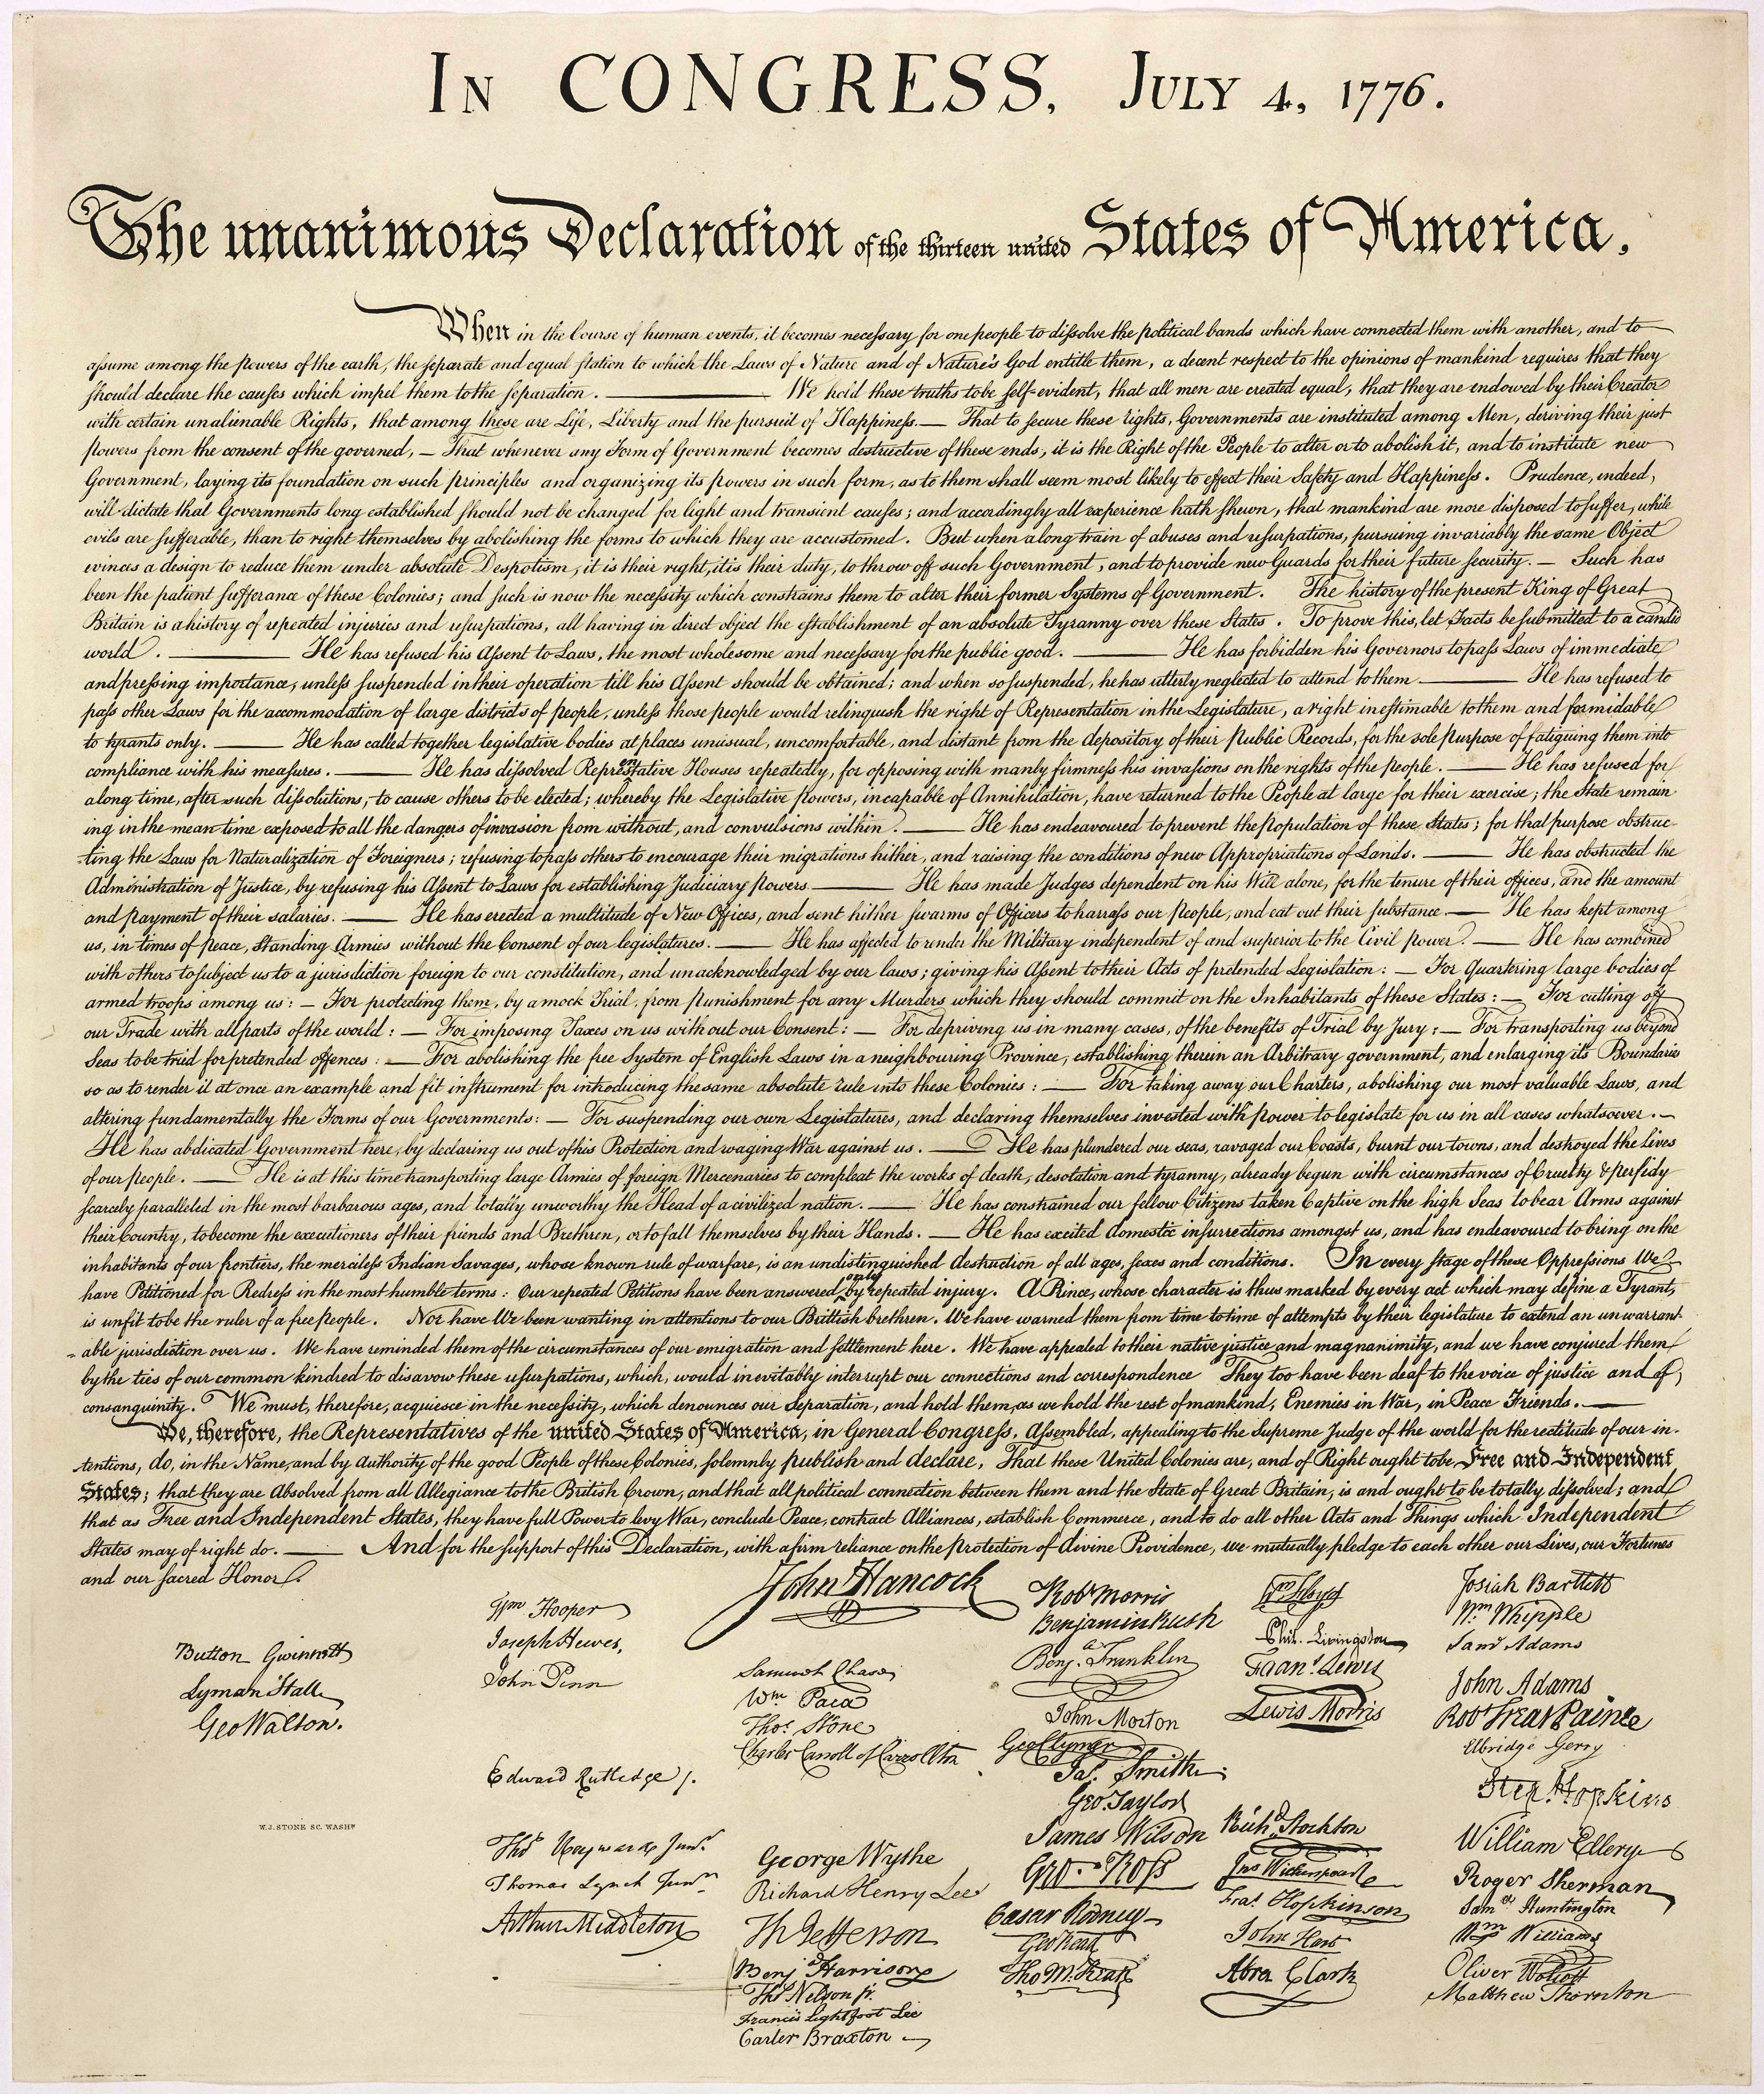 In CONGRESS, July 4, 1776.
The unanimous Declaration of the thirteen united States of America,
When in the Course of human events, it becomes necessary for one people to dissolve the political bands which have connected them with another, and to
assume among the powers of the earth, the separate and equal station to which the Laws of Nature and of Nature's God entitle them, a decent respect to the opinions of mankind requires that they
should declare the causes which impel them to the separation. — We hold these truths to be self-evident, that all men are created equal, that they are endowed by their Creator
with certain unalienable Rights, that among these are Life, Liberty and the pursuit of Happiness. — That to secure these rights, Governments are instituted among Men, deriving their just
powers from the consent of the governed, — That whenever any Form of Government becomes destructive of these ends, it is the Right of the People to alter or to abolish it, and to institute new
Government, laying its foundation on such principles and organizing its powers in such form, as to them shall seem most likely to effect their Safety and Happiness. Prudence, indeed,
will dictate that Governments long established should not be changed for light and transient causes; and accordingly all experience hath shewn, that mankind are more disposed to suffer, while
evils are sufferable, than to right themselves by abolishing the forms to which they are accustomed. But when a long train of abuses and usurpations, pursuing invariably the same Object
evinces a design to reduce them under absolute Despotism, it is their right, it is their duty, to throw off such Government, and to provide new Guards for their future security. — Such has
been the patient sufferance of these Colonies; and such is now the necessity which constrains them to alter their former Systems of Government. The history of the present King of Great
Britain is a history of repeated injuries and usurpations, all having in direct object the establishment of an absolute Tyranny over these States. To prove this, let Facts be submitted to a candid
world. — He has refused his Assent to Laws, the most wholesome and necessary for the public good. — He has forbidden his Governors to pass Laws of immediate
and pressing importance, unless suspended in their operation till his Assent should be obtained; and when so suspended, he has utterly neglected to attend to them. — He has refused to
pass other Laws for the accommodation of large districts of people, unless those people would relinquish the right of Representation in the Legislature, a right inestimable to them and formidable
to tyrants only. — He has called together legislative bodies at places unusual, uncomfortable, and distant from the depository of their Public Records, for the sole purpose of fatiguing them into
compliance with his measures. — He has dissolved Representative Houses repeatedly, for opposing with manly firmness his invasions on the rights of the people. — He has refused for
a long time, after such dissolutions, to cause others to be elected; whereby the Legislative powers, incapable of Annihilation, have returned to the People at large for their exercise; the State remain
ing in the mean time exposed to all the dangers of invasion from without, and convulsions within. — He has endeavoured to prevent the population of these States; for that purpose obstruc-
-ting the Laws for Naturalization of Foreigners; refusing to pass others to encourage their migrations hither, and raising the conditions of new Appropriations of Lands. — He has obstructed the
Administration of Justice, by refusing his Assent to Laws for establishing Judiciary powers — He has made Judges dependent on his Will alone, for the tenure of their offices, and the amount
and payment of their salaries. — He has erected a multitude of New Offices, and sent hither swarms of Officers to harrass our people, and eat out their substance. — He has kept among
us, in times of peace, Standing Armies without the Consent of our legislatures. — He has affected to render the Military independent of and superior to the Civil power. — He has combined
with others to subject us to a jurisdiction foreign to our constitution, and unacknowledged by our laws; giving his Assent to their Acts of pretended Legislation: — For Quartering large bodies of
armed troops among us: — For protecting them, by a mock Trial, from punishment for any Murders which they should commit on the Inhabitants of these States: — For cutting off
our Trade with all parts of the world: — For imposing Taxes on us without our Consent: — For depriving us in many cases, of the benefits of Trial by Jury: — For transporting us beyond
Seas to be tried for pretended offences: — For abolishing the free System of English Laws in a neighbouring Province, establishing therein an Arbitrary government, and enlarging its Boundaries
so as to render it at once an example and fit instrument for introducing the same absolute rule into these Colonies: — For taking away our Charters, abolishing our most valuable Laws, and
altering fundamentally the Forms of our Governments: — For suspending our own Legislatures, and declaring themselves invested with power to legislate for us in all cases whatsoever. —
He has abdicated Government here, by declaring us out of his Protection and waging War against us. — He has plundered our seas, ravaged our Coasts, burnt our towns, and destroyed the lives
of our people. — He is at this time transporting large Armies of foreign Mercenaries to compleat the works of death, desolation and tyranny, already begun with circumstances of Cruelty & perfidy
scarcely paralleled in the most barbarous ages, and totally unworthy the Head of a civilized nation. — He has constrained our fellow Citizens taken Captive on the high Seas to bear Arms against
their Country, to become the executioners of their friends and Brethren, or to fall themselves by their Hands. — He has excited domestic insurrections amongst us, and has endeavoured to bring on the
inhabitants of our frontiers, the merciless Indian Savages, whose known rule of warfare, is an undistinguished destruction of all ages, sexes and conditions. In every stage of these Oppressions We
have Petitioned for Redress in the most humble terms: Our repeated Petitions have been answered only by repeated injury. A Prince, whose character is thus marked by every act which may define a Tyrant,
is unfit to be the ruler of a free people. Nor have We been wanting in attentions to our Brittish brethren. We have warned them from time to time of attempts by their legislature to extend an unwarrant-
-able jurisdiction over us. We have reminded them of the circumstances of our emigration and settlement here. We have appealed to their native justice and magnanimity, and we have conjured them
by the ties of our common kindred to disavow these usurpations, which, would inevitably interrupt our connections and correspondence They too have been deaf to the voice of justice and of
consanguinity. We must, therefore, acquiesce in the necessity, which denounces our Separation, and hold them, as we hold the rest of mankind, Enemies in War, in Peace Friends. —
We, therefore, the Representatives of the united States of America, in General Congress, Assembled, appealing to the Supreme Judge of the world for the rectitude of our in-
-tentions, do, in the Name, and by Authority of the good People of these Colonies, solemnly publish and declare, That these United Colonies are, and of Right ought to be Free and Independent
States; that they are Absolved from all Allegiance to the British Crown, and that all political connection between them and the State of Great Britain, is and ought to be totally dissolved; and
that as Free and Independent States, they have full Power to levy War, conclude Peace, contract Alliances, establish Commerce, and to do all other Acts and Things which Independent
States may of right do. — And for the support of this Declaration, with a firm reliance on the protection of divine Providence, we mutually pledge to each other our Lives, our Fortunes
and our sacred Honor.
Button Gwinnett
Lyman Hall
Geo Walton.
W. J. STONE SC. WASHN
Wm Hooper
Joseph Hewes,
John Penn
Edward Rutledge /.
Thos Heyward Junr.
Thomas Lynch Junr.
Arthur Middleton
John Hancock
Samuel Chase
Wm. Paca
Thos. Stone
Charles Carroll of Carrollton
George Wythe
Richard Henry Lee
Th Jefferson
Benj Harrison
Thos Nelson jr.
Francis Lightfoot Lee
Carter Braxton
Robt Morris
Benjamin Rush
Benj. Franklin
John Morton
Geo Clymer
Jas. Smith
Geo. Taylor
James Wilson
Geo. Ross
Caesar Rodney
Geo Read
Tho M:Kean
Wm Floyd
Phil. Livingston
Frans. Lewis
Lewis Morris
Richd. Stockton
Jno Witherspoon
Fras. Hopkinson
John Hart
Abra Clark
Josiah Bartlett
Wm. Whipple
Saml Adams
John Adams
Robt Treat Paine
Elbridge Gerry
Step. Hopkins
William Ellery
Roger Sherman
Saml Huntington
Wm Williams
Oliver Wolcott
Matthew Thornton